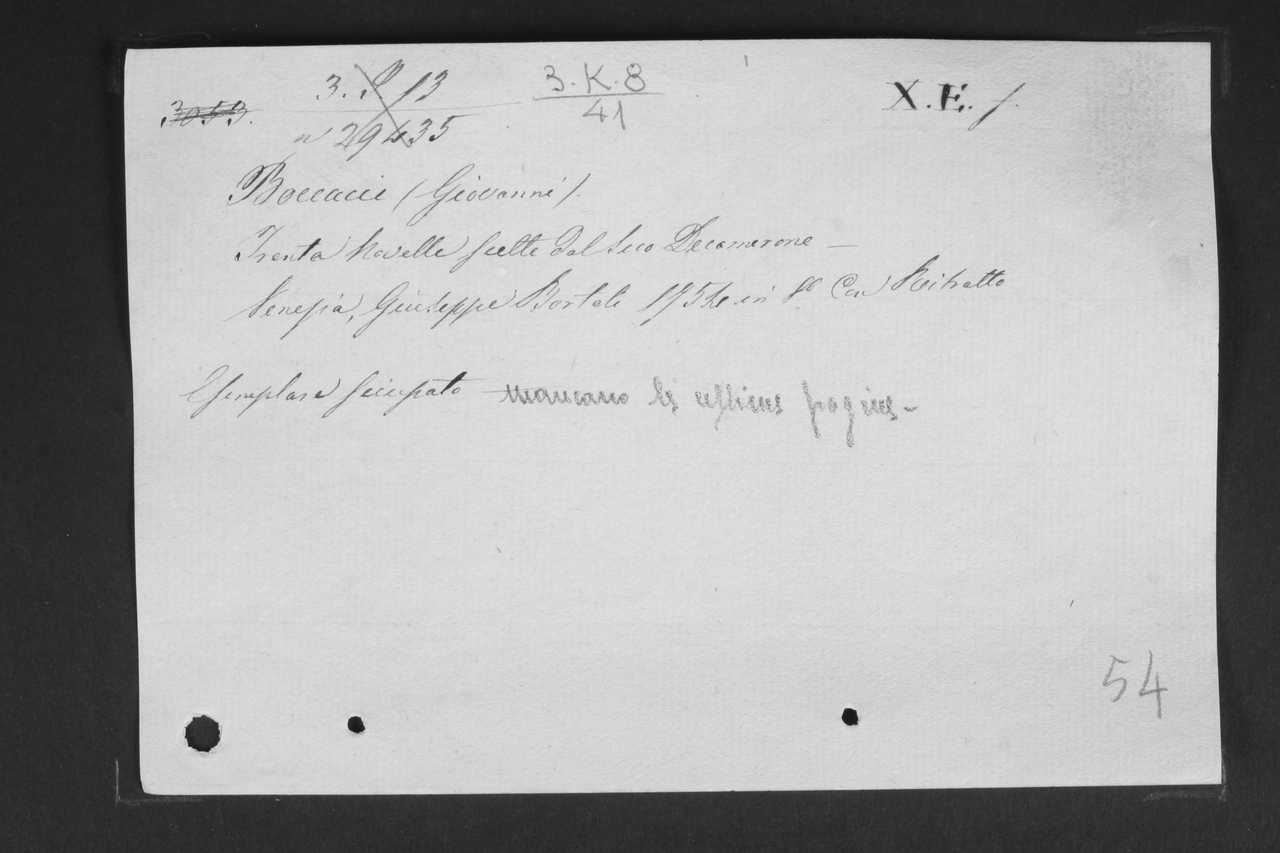 3053.
3. P 13
n 29435
3. K. 8
41
X. E. f.
Boccacci (Giovanni).
Trenta Novelle scelte dal suo Decamerone —
Venezia, Giuseppe Bortoli 1754 in 8º Con Ritratto
Esemplare sciupato mancano le ultime pagine -
54